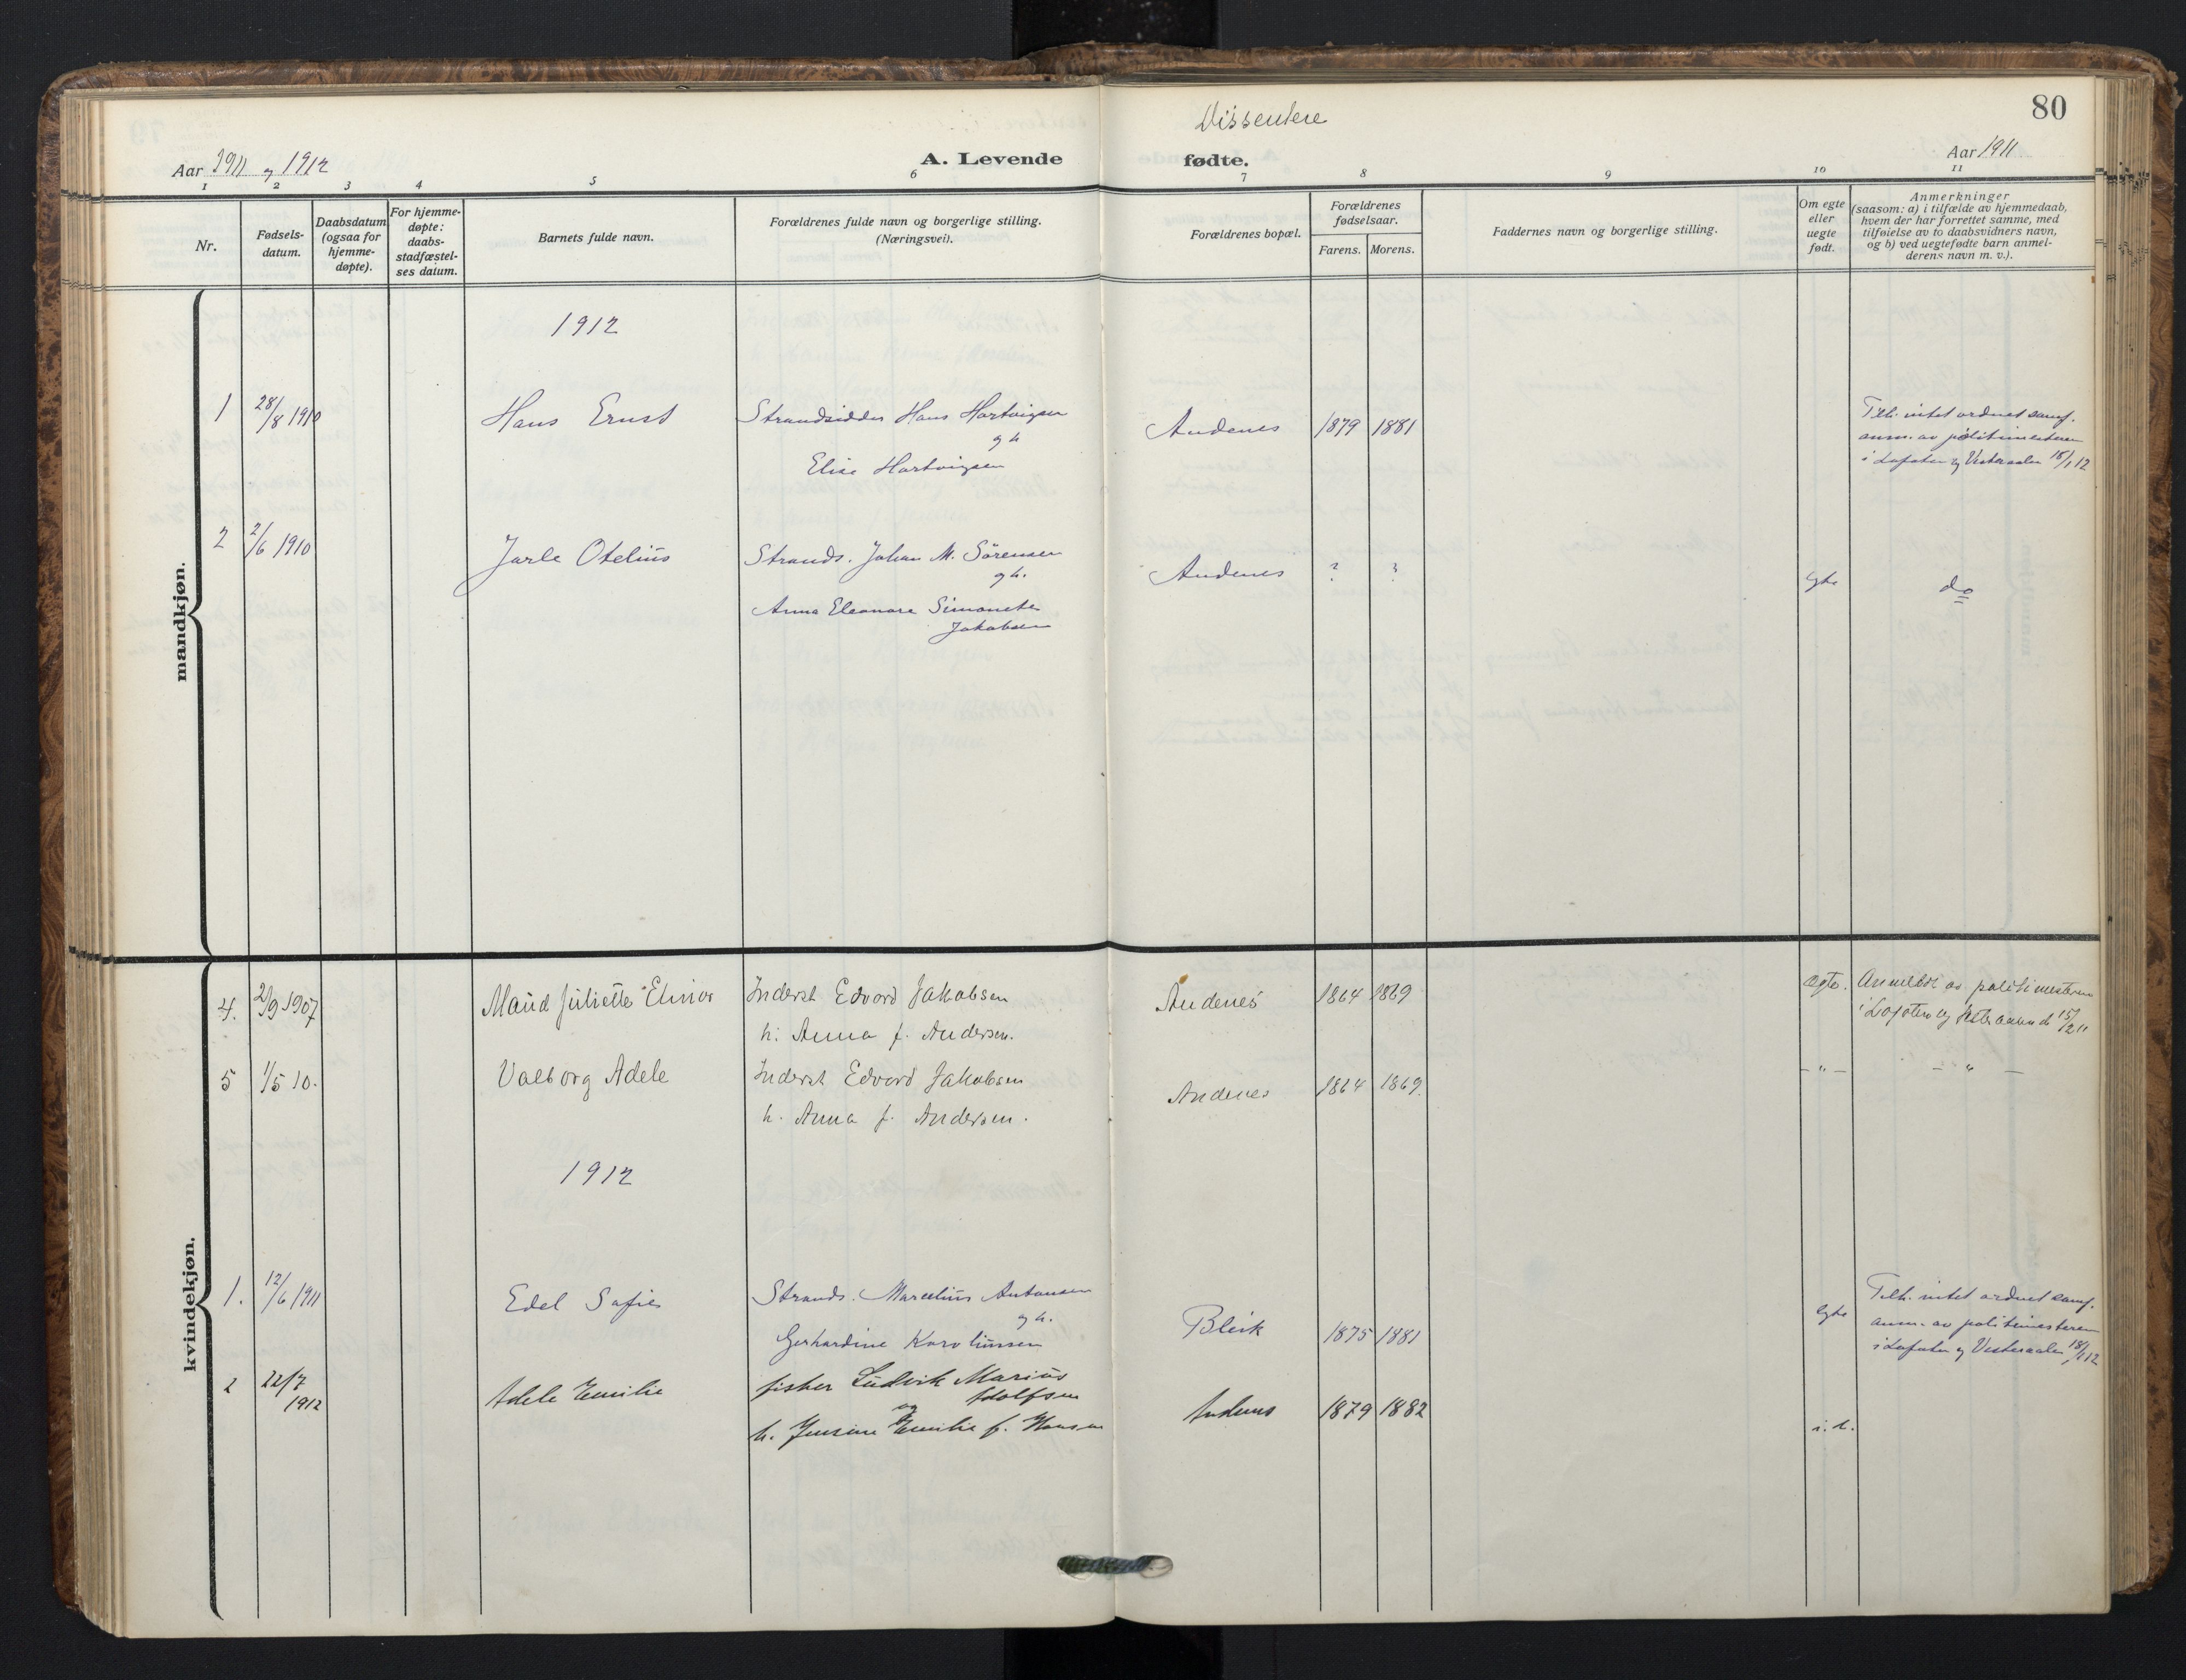 Dissentere
80
Aar 1911 og 1912
A. Levende fødte.
Aar 1911
1 2 3 4 5 6 7 8 9 10 11
Nr.
Fødsels-
datum.
Daabsdatum
(ogsaa for
hjemme-
døpte).
For hjemme-
døpte:
daabs-
stadfæstel-
ses datum.
Barnets fulde navn.
Forældrenes fulde navn og borgerlige stilling.
(Næringsvei).
Forældrenes bopæl.
Forældrenes
fødselsaar.
Farens. Morens.
Faddernes navn og borgerlige stilling.
Om egte
eller
uegte
født.
Anmerkninger
(saasom: a) i tilfælde av hjemmedaab,
hvem der har forrettet samme, med
tilføielse av to daabsvidners navn,
og b) ved uegtefødte barn anmel-
derens navn m. v.).
mandkjøn.
1912
1 28/8 1910 Hans Ernst Strandsidder Hans Hartvigsen Andenes 1879 1881 Tilh. intet ordnet samf.
og h. anm. av politimesteren
Elise Hartvigsen i Lofoten og Vesteraalen 18/1 12
2 2/6 1910 Jarle Otelius Strands. Johan M. Sørensen Andenes ? ? Egte do
og h.
Anna Eleonore Simonette
Jakobsen
kvindekjøn.
4. 2/9 1907 Maud Juliette Elinor Inderst Edvard Jakobsen Andenes 1864 1869 Ægte. Anmeldt av politimesteren
h. Anna f. Andersen. i Lofoten og Vesteraalen d 15/2 11
5 1/5 10. Valborg Adele Inderst Edvard Jakobsen Andenes 1864 1869. -"- - " -
h. Anna f. Andersen.
1912
1. 12/6 1911 Edel Sofie Strands. Marcelius Antonsen Bleik 1875 1881 Egte Tilh. intet ordnet samf.
og h. anm. av politimesteren
Gerhardine Karoliussen i Lofoten og Vesteraalen 18/1 12
2 22/7 1912 Adele Emilie fisker Ludvik Marius Adolfsen Andenes 1879 1882 i. e.
og
h. Jensine Emilie f. Hansen